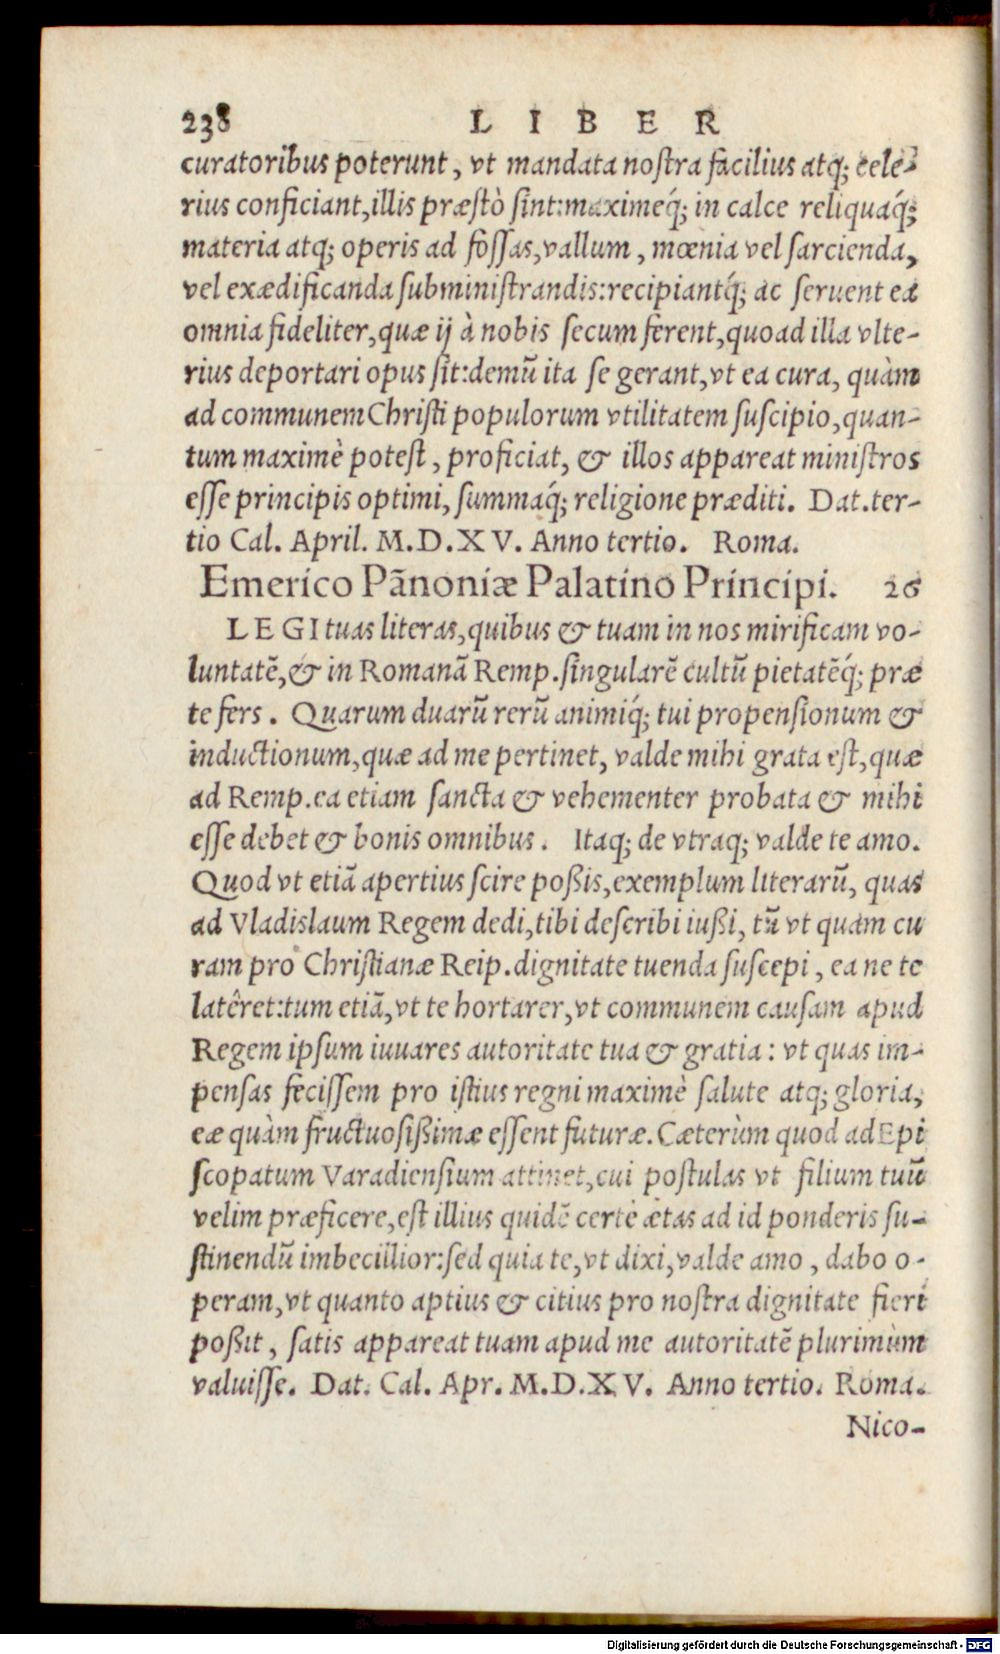 238 LIBER
curatoribus poterunt, vt mandata noſtra facilius atq́; cele-
rius conficiant, illis præstò ſint: maximeq́; in calce reliquaq́;
materia atq; operis ad foſſas, vallum, mœnia vel ſarcienda,
vel exædificanda ſubminiſtrandis: recipiantq́; ac ſeruent ea
omnia fideliter, quæ ij à nobis ſecum ferent, quoad illa vlte-
rius deportari opus ſit: demũ ita ſe gerant, vt ea cura, quàm
ad communem Chriſti populorum vtilitatem ſuſcipio, quan-
tum maximè poteſt, proficiat, & illos appareat miniſtros
eſſe principis optimi, ſummaq́; religione præditi. Dat. ter-
tio Cal. April. M.D.XV. Anno tertio. Roma.
Emerico Pãnoniæ Palatino Principi. 26
LEGI tuas literas, quibus & tuam in nos mirificam vo-
luntatẽ, & in Romanã Remp. ſingularẽ cultũ pietatẽq́; præ
te fers. Quarum duarũ rerũ animiq́; tui propenſionum &
inductionum, quæ ad me pertinet, valde mihi grata eſt, quæ
ad Remp. ea etiam ſancta & vehementer probata & mihi
eſſe debet & bonis omnibus. Itaq; de vtraq; valde te amo.
Quod vt etiã apertius ſcire poßis, exemplum literarũ, quas
ad Vladislaum Regem dedi, tibi deſcribi iußi, tũ vt quam cu
ram pro Chriſtianæ Reip. dignitate tuenda ſuſcepi, ea ne te
latêret: tum etiã, vt te hortarer, vt communem cauſam apud
Regem ipſum iuuares autoritate tua & gratia: vt quas im-
penſas feciſſem pro iſtius regni maximè ſalute atq; gloria,
eæ quàm fructuoſißimæ eſſent futuræ. Cæterùm quod ad Epi
ſcopatum Varadienſium attinet, cui poſtulas vt filium tuũ
velim præficere, eſt illius quidẽ certè ætas ad id ponderis ſu-
ſtinendũ imbecillior: ſed quia te, vt dixi, valde amo, dabo o-
peram, vt quanto aptius & citius pro noſtra dignitate fieri
poßit, ſatis appareat tuam apud me autoritatẽ plurimùm
valuiſſe. Dat. Cal. Apr. M.D.XV. Anno tertio. Roma.
Nico-
Digitalisierung gefördert durch die Deutsche Forschungsgemeinschaft - DFG